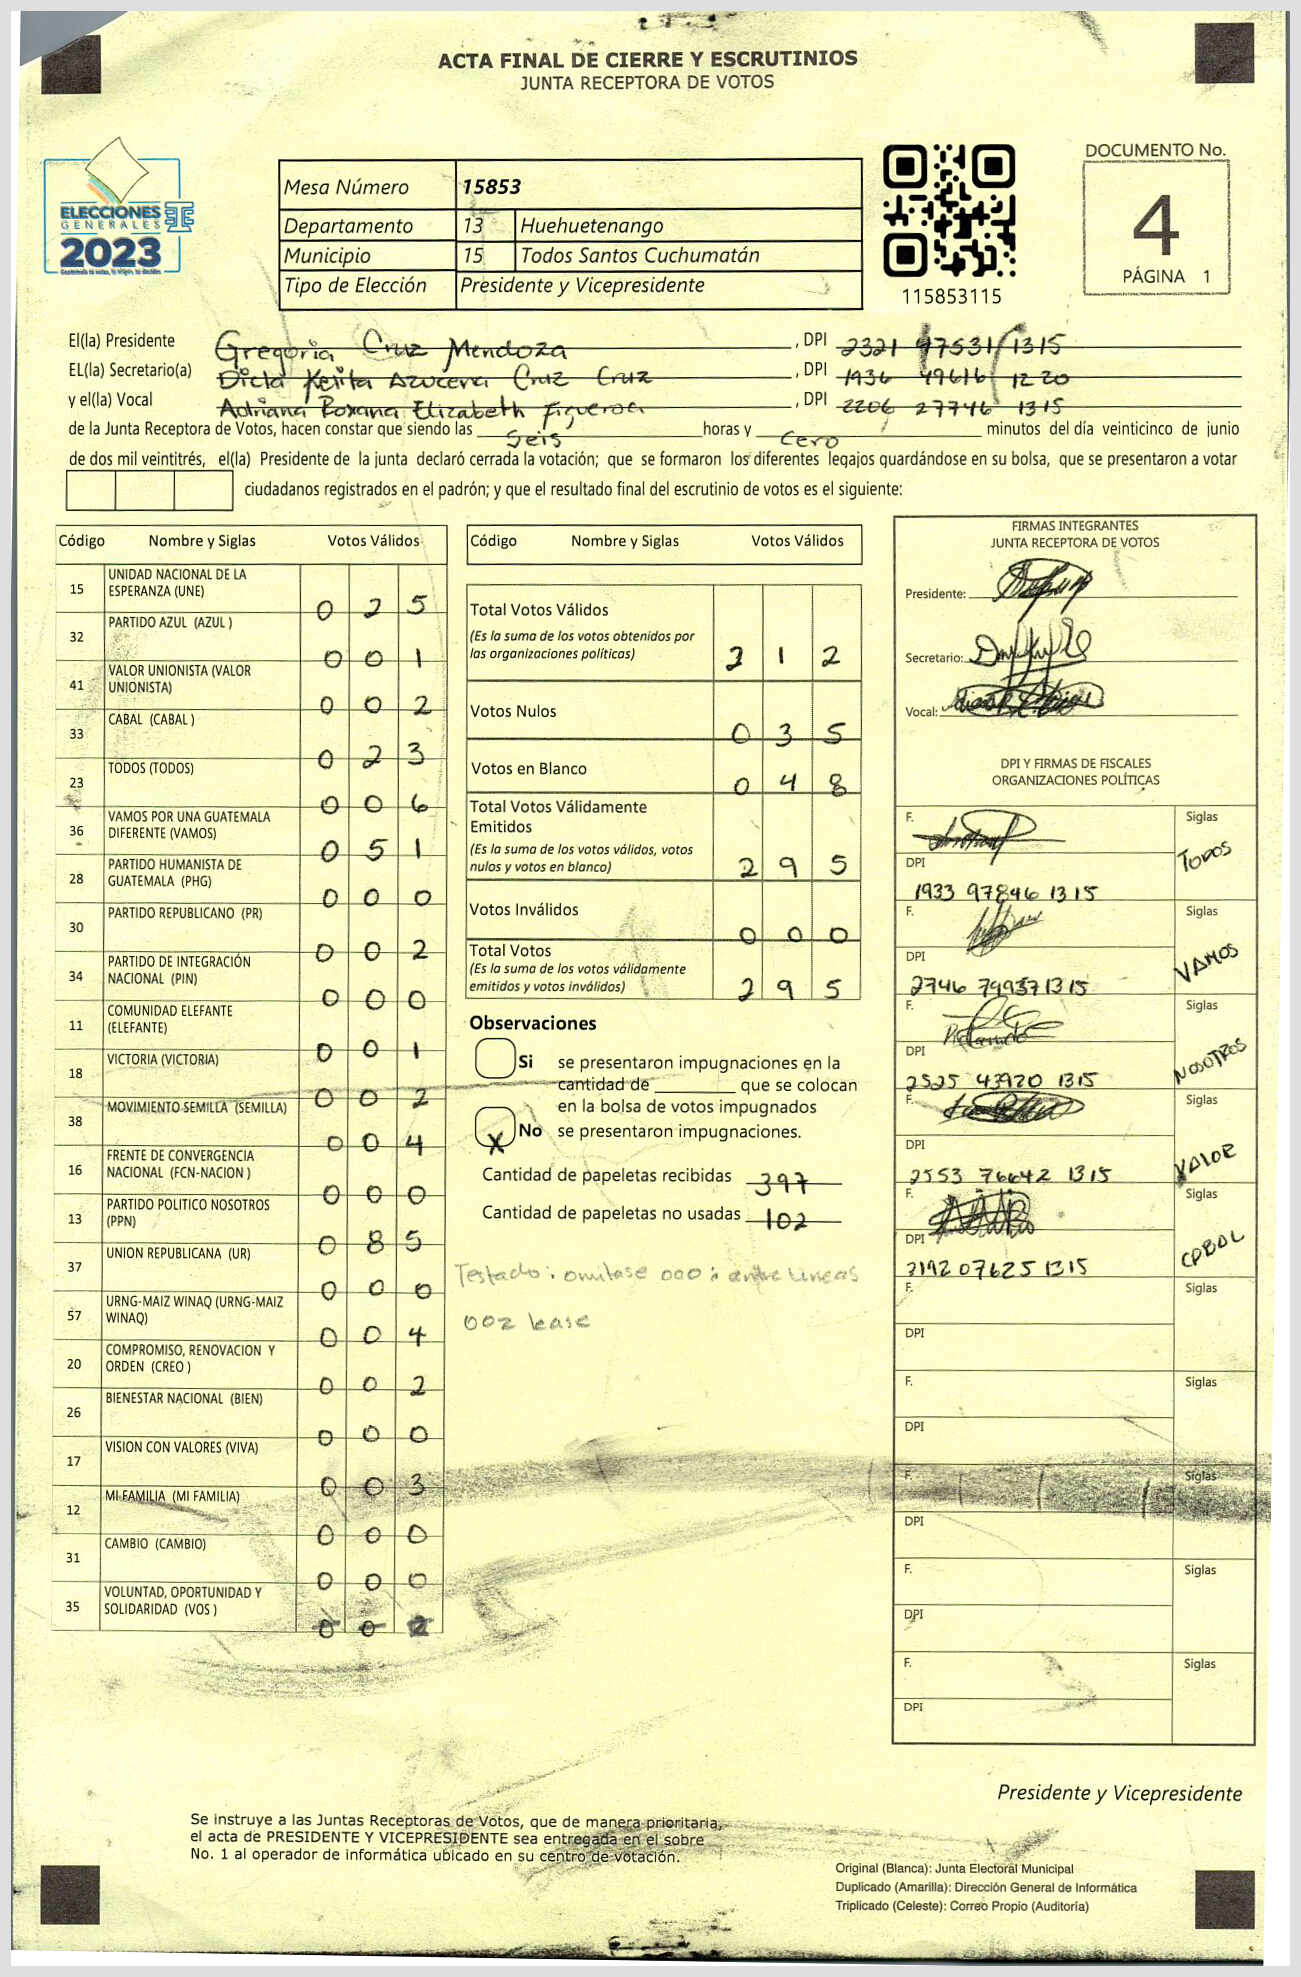 ACTA FINAL DE CIERRE Y ESCRUTINIOS
JUNTA RECEPTORA DE VOTOS
ELECCIONES
GENERALES
2023
Mesa Número 15853
Departamento 13 Huehuetenango
Municipio 15 Todos Santos Cuchumatán
Tipo de Elección Presidente y Vicepresidente
115853115
DOCUMENTO No.
4
PÁGINA 1
El(la) Presidente Gregoria Cruz Mendoza, DPI 2321 97531 1315
EL(la) Secretario(a) Azucena Cruz Cruz, DPI 1936 49616 1220
y el(la) Vocal Adriana Roxana Elizabeth Figueroa, DPI 2206 27746 1315
de la Junta Receptora de Votos, hacen constar que siendo las seis horas y cero minutos del día veinticinco de junio
de dos mil veintitrés, el(la) Presidente de la junta declaró cerrada la votación; que se formaron los diferentes legajos guardándose en su bolsa, que se presentaron a votar
ciudadanos registrados en el padrón; y que el resultado final del escrutinio de votos es el siguiente:
Código Nombre y Siglas Votos Válidos
15 UNIDAD NACIONAL DE LA ESPERANZA (UNE) 0 2 5
32 PARTIDO AZUL (AZUL ) 0 0 1
41 VALOR UNIONISTA (VALOR UNIONISTA) 0 0 2
33 CABAL (CABAL ) 0 2 3
23 TODOS (TODOS) 0 0 6
36 VAMOS POR UNA GUATEMALA DIFERENTE (VAMOS) 0 5 1
28 PARTIDO HUMANISTA DE GUATEMALA (PHG) 0 0 0
30 PARTIDO REPUBLICANO (PR) 0 0 2
34 PARTIDO DE INTEGRACIÓN NACIONAL (PIN) 0 0 0
11 COMUNIDAD ELEFANTE (ELEFANTE) 0 0 1
18 VICTORIA (VICTORIA) 0 0 2
38 MOVIMIENTO SEMILLA (SEMILLA) 0 0 4
16 FRENTE DE CONVERGENCIA NACIONAL (FCN-NACION ) 0 0 0
13 PARTIDO POLITICO NOSOTROS (PPN) 0 8 5
37 UNION REPUBLICANA (UR) 0 0 0
57 URNG-MAIZ WINAQ (URNG-MAIZ WINAQ) 0 0 4
20 COMPROMISO, RENOVACION Y ORDEN (CREO ) 0 0 2
26 BIENESTAR NACIONAL (BIEN) 0 0 0
17 VISION CON VALORES (VIVA) 0 0 3
12 MI FAMILIA (MI FAMILIA) 0 0 0
31 CAMBIO (CAMBIO) 0 0 0
35 VOLUNTAD, OPORTUNIDAD Y SOLIDARIDAD (VOS ) 0 0 2
Código Nombre y Siglas Votos Válidos
Total Votos Válidos
(Es la suma de los votos obtenidos por
las organizaciones políticas) 2 1 2
Votos Nulos 0 3 5
Votos en Blanco 0 4 8
Total Votos Válidamente
Emitidos
(Es la suma de los votos válidos, votos
nulos y votos en blanco) 2 9 5
Votos Inválidos 0 0 0
Total Votos
(Es la suma de los votos válidamente
emitidos y votos inválidos) 2 9 5
Observaciones
Si se presentaron impugnaciones en la
cantidad de que se colocan
en la bolsa de votos impugnados
X No se presentaron impugnaciones.
Cantidad de papeletas recibidas 397
Cantidad de papeletas no usadas 102
Testado: omitase 000: entre lineas
002 lease
FIRMAS INTEGRANTES
JUNTA RECEPTORA DE VOTOS
Presidente:
Secretario:
Vocal:
DPI Y FIRMAS DE FISCALES
ORGANIZACIONES POLÍTICAS
F. Siglas TODOS
DPI
1933 97846 1315
F. Siglas VAMOS
DPI
2746 79937 1315
F. Siglas NOSOTROS
DPI
2525 43920 1315
F. Siglas VALOR
DPI
2553 76642 1315
F. Siglas
DPI
3192 07625 1315
F. Siglas
DPI
F. Siglas
DPI
F. Siglas
DPI
F. Siglas
DPI
F. Siglas
DPI
Presidente y Vicepresidente
Se instruye a las Juntas Receptoras de Votos, que de manera prioritaria,
el acta de PRESIDENTE Y VICEPRESIDENTE sea entregada en el sobre
No. 1 al operador de informática ubicado en su centro de votación.
Original (Blanca): Junta Electoral Municipal
Duplicado (Amarilla): Dirección General de Informática
Triplicado (Celeste): Correo Propio (Auditoría)